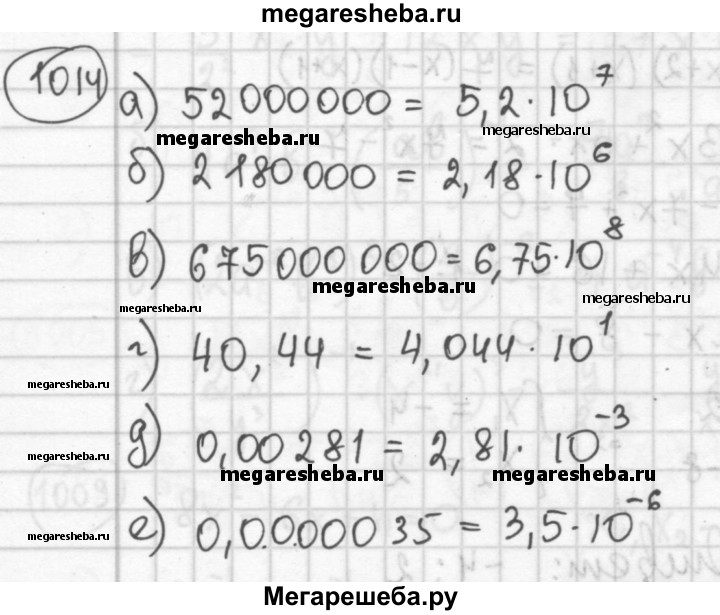 megaresheba.ru
1014
а) 52 000 000 = 5,2 · 10⁷
megaresheba.ru megaresheba.ru
б) 2 180 000 = 2,18 · 10⁶
в) 675 000 000 = 6,75 · 10⁸
megaresheba.ru megaresheba.ru
megaresheba.ru
г) 40,44 = 4,044 · 10¹
megaresheba.ru
д) 0,00281 = 2,81 · 10⁻³
megaresheba.ru megaresheba.ru megaresheba.ru
е) 0,0000035 = 3,5 · 10⁻⁶
megaresheba.ru
Мегарешеба.ру